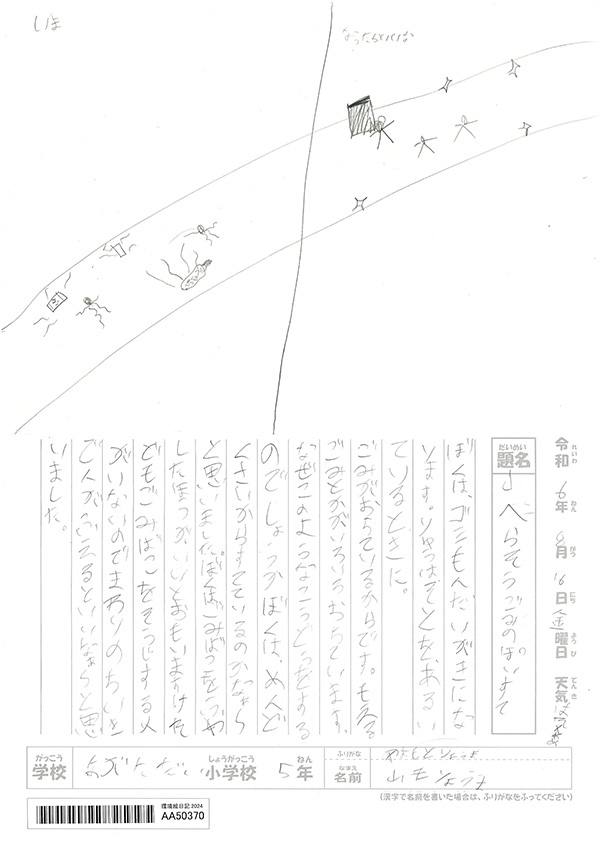 いま
なったらいいな
令和6年8月16日金曜日 天気
れいわ ねん がつ にち ようび てんき
だいめい
題名
へらそうごみのぽいすて
ぼくは、ゴミもんだいがきにな
ります。りゆうはそとを、あるい
ているときに。
ごみがおちているからです。もえる
ごみとかがいろいろおちています。
なぜこのようなこうどうをする
のでしょうかぼくは、めんど
くさいからすてているのかなぁら
と思いました。ぼくはごみばこをふや
したほうが、いいとおもいますけれ
どもごみばこをそうじする人
がいないのでまわりのちいき
で人がふえるといいなぁらと思
いました。
がっこう
学校
しょうがっこう
小学校
5年
ねん
ふりがな
なまえ
名前
(漢字で名前を書いた場合は、ふりがなをふってください)
環境絵日記2024
AA50370